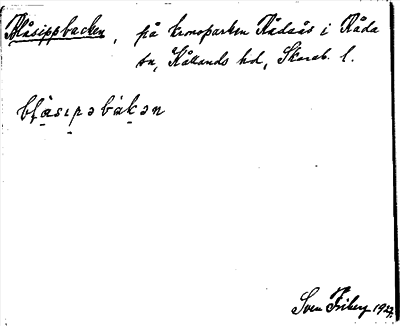 Blåsippbacken, på kronoparken Rådaås i Råda
sn, Kållands hd, Skarab. l.
blåsıpəbàkən
Sven Friberg 1927.